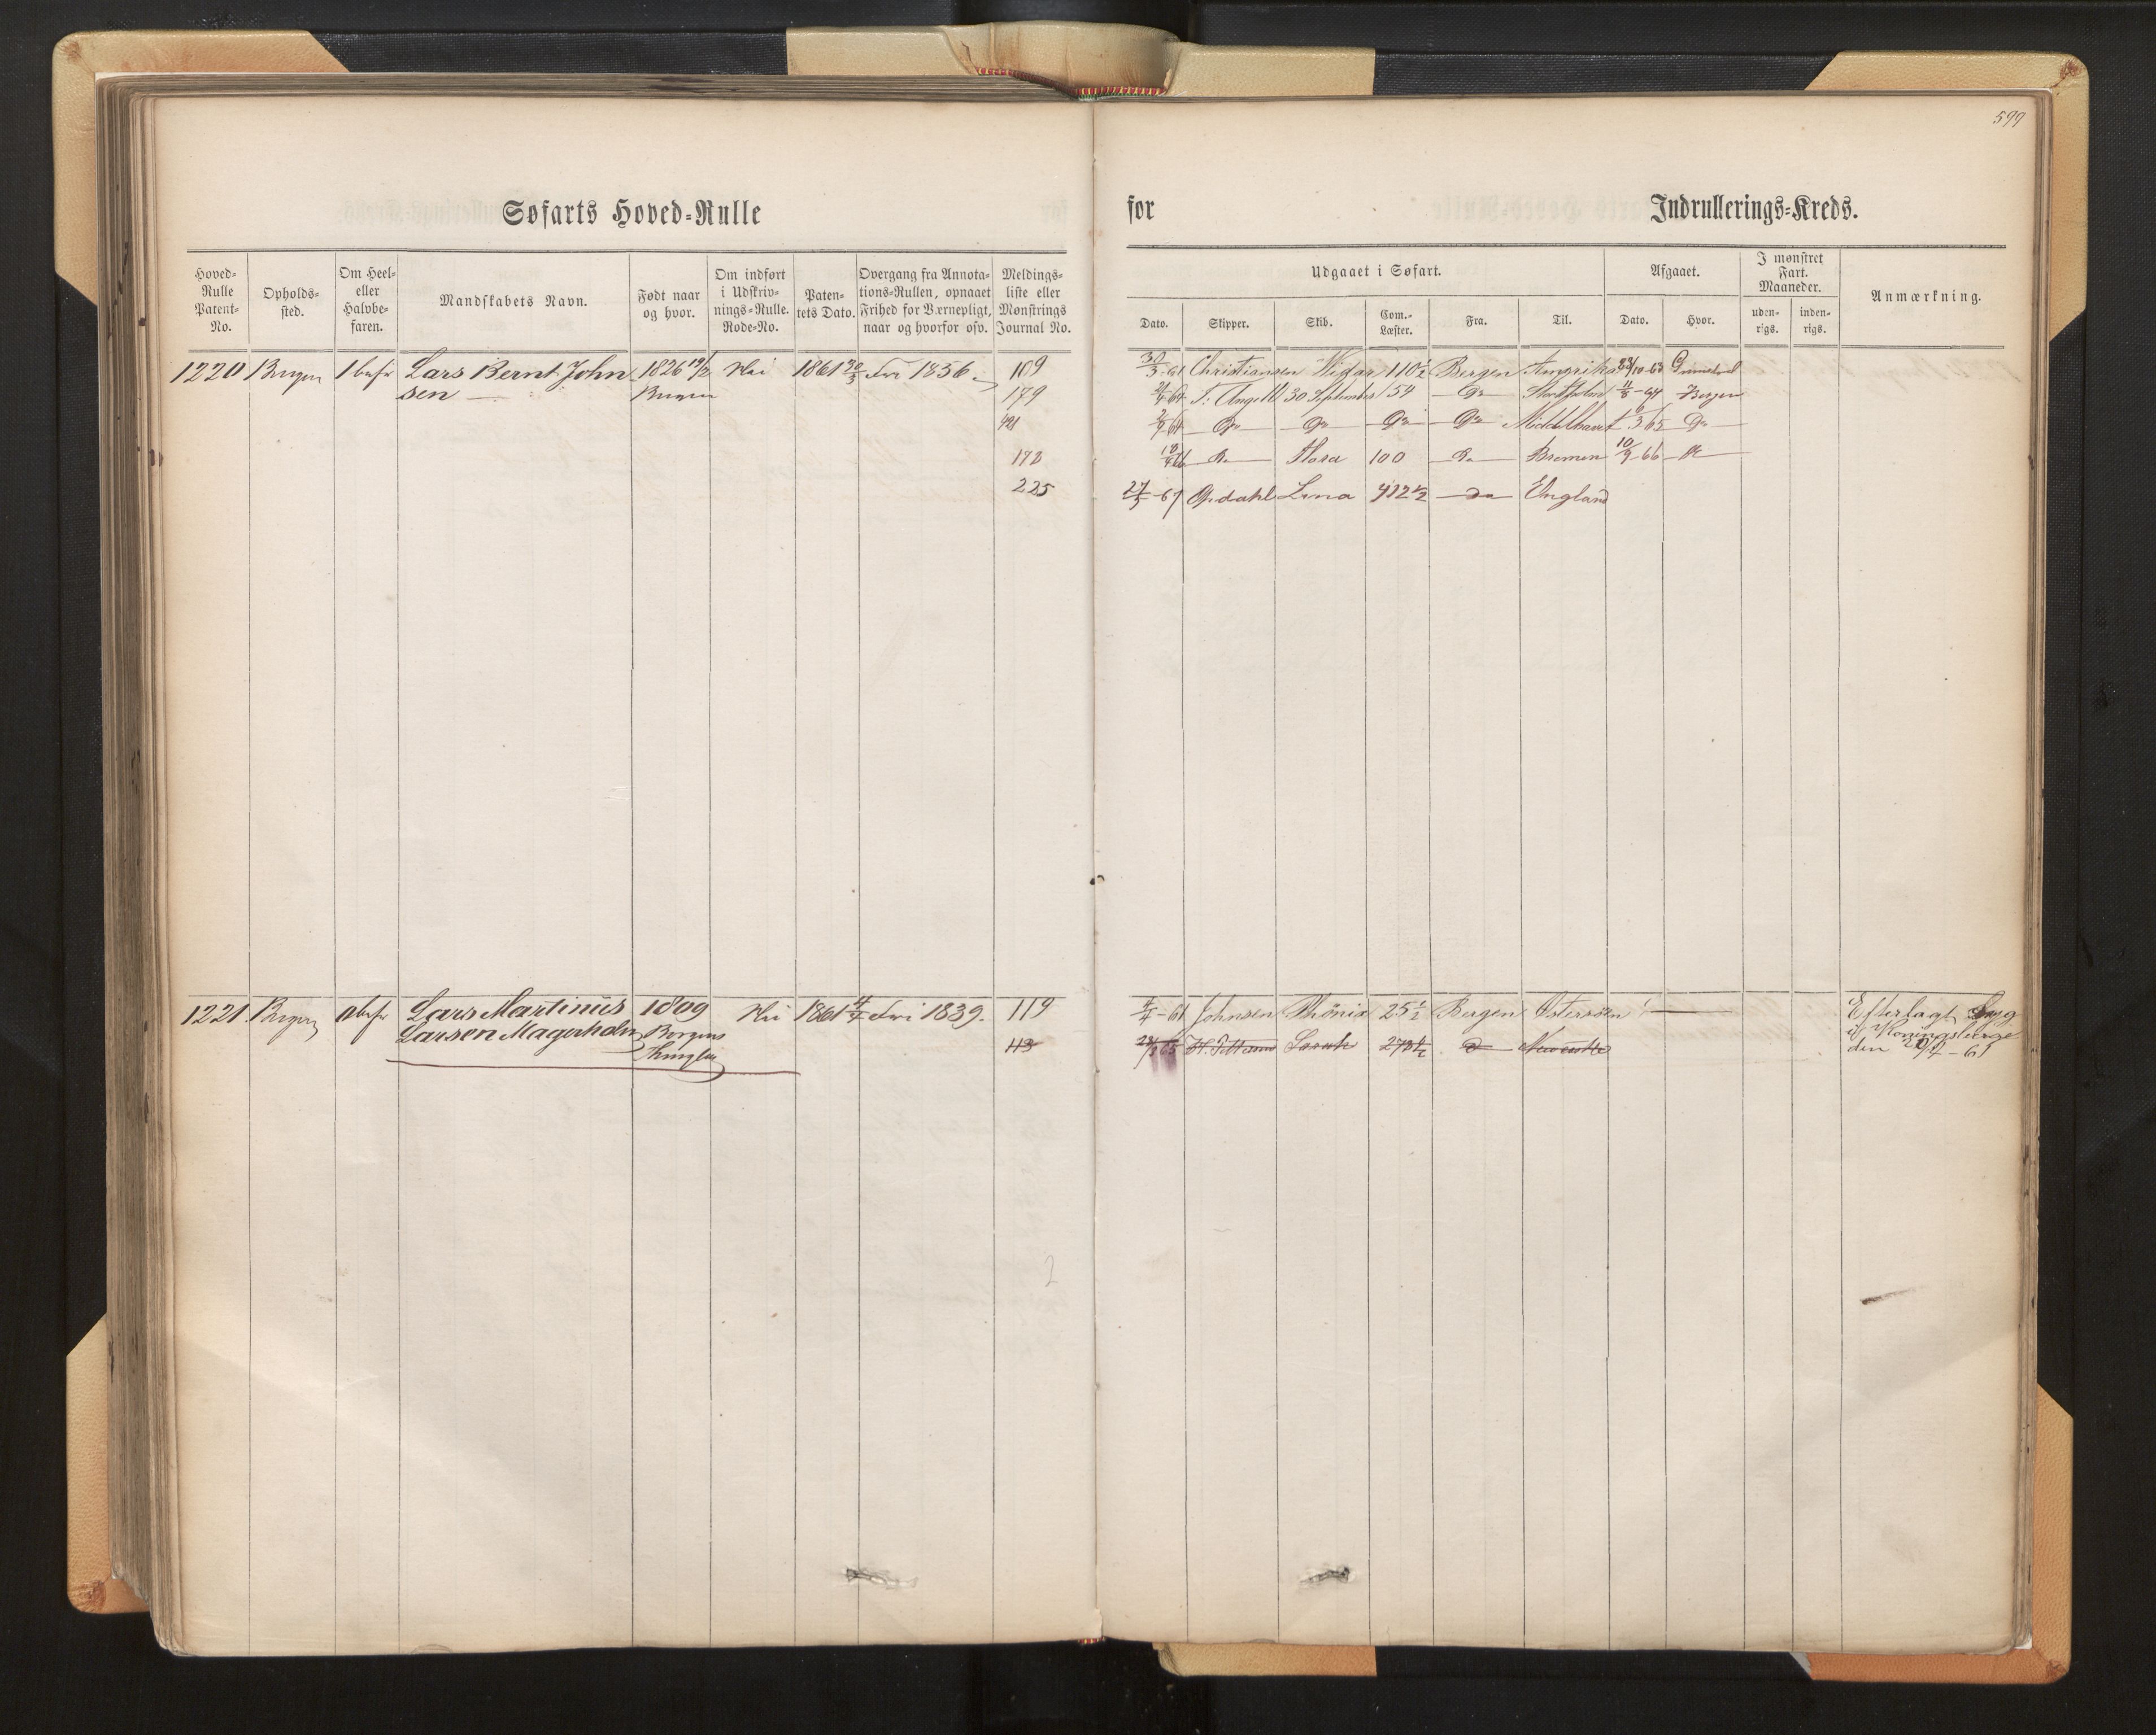 599
Søfarts Hoved-Rulle
for Indrullerings-Kreds.
Hoved-Rulle Patent-No.
Opholds-sted.
Om Heel- eller Halvbe-faren.
Mandskabets Navn.
Født naar og hvor.
Om indført i Udskriv-nings-Rulle. Rode-No.
Paten-tets Dato.
Overgang fra Annota-tions-Rullen, opnaaet Frihed for Værnepligt, naar og hvorfor osv.
Meldings-liste eller Mønstrings Journal No.
Udgaaet i Søfart.
Dato.
Skipper.
Skib.
Com.-Læster.
Fra.
Til.
Afgaaet.
Dato.
Hvor.
I mønstret Fart. Maaneder.
uden-rigs.
inden-rigs.
Anmærkning.
1220 Bergen Lars Bernt John 1826 19/2 Nei 1861 30/3 Fri 1856 169 30/3-61 Christiansen Widar 110 1/2 Bergen Amerika
sen Bergen 179 T: Angell 30 September 54 Do Stockholm Bergen
Do Do Do Do Middelhavet Do
Do 100 Do Bremen 10/9-66 Do
225 27/3-67 Opdahl Lena 412 1/2 Do England
1221 Bergen Lars Martinus 1809 Nei 1861 4/4 Fri 1839. 119 4/4-61 Johnsen Phönix 25 1/2 Bergen Østersøen
Larsen Magerholm Bergen 113 Sarah Newcastle
Efterlagt Syg
i Koningsberge
den
2